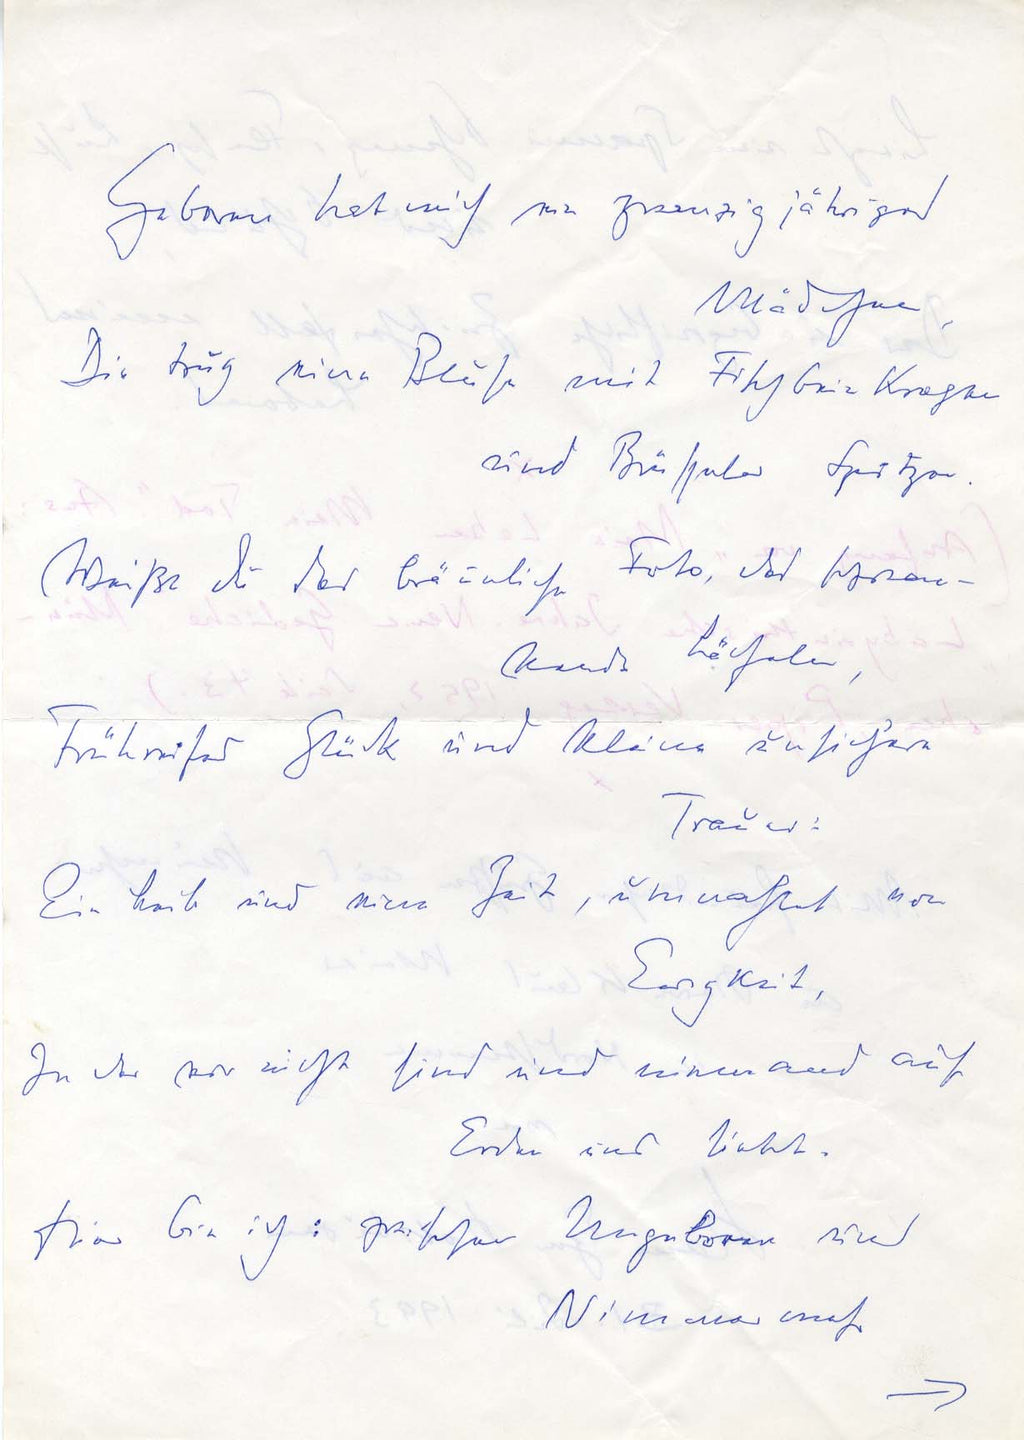 Geboren hat mich ein zwanzigjähriges
Mädchen,
Die trug eine Bluse mit Fischbein Kragen
und Brüsseler Spitzen.
Weißt du das bräunliche Foto, das schwan-
kende Lächeln,
Frühreifes Glück und kleine unsichere
Trauer:
Ein Leib und eine Zeit, umwachsen von
Ewigkeit,
In der wir nicht sind und niemand auf
Erden uns sieht.
Hier bin ich: zwischen Ungeboren und
Nimmermehr
→